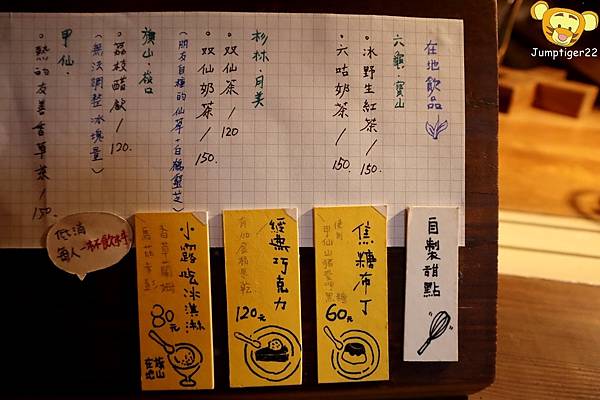 Jumptiger22
在地飲品
六龜・寶山
。冰野生紅茶/150.
。六咕奶茶/150.
杉林・月美
。双仙茶/120
。双仙奶茶/150.
(朋友自種的仙草+白鶴靈芝)
旗山・嶺口
。荔枝醋飲/120.
(無法調整冰塊量)
甲仙.
。熱的友善香草茶/150.
低消
每人一杯飲
自製甜點
焦糖布丁
60元
經典巧克力
120元
小露吃冰淇淋
香草蘭姆
80元
旗山
在地